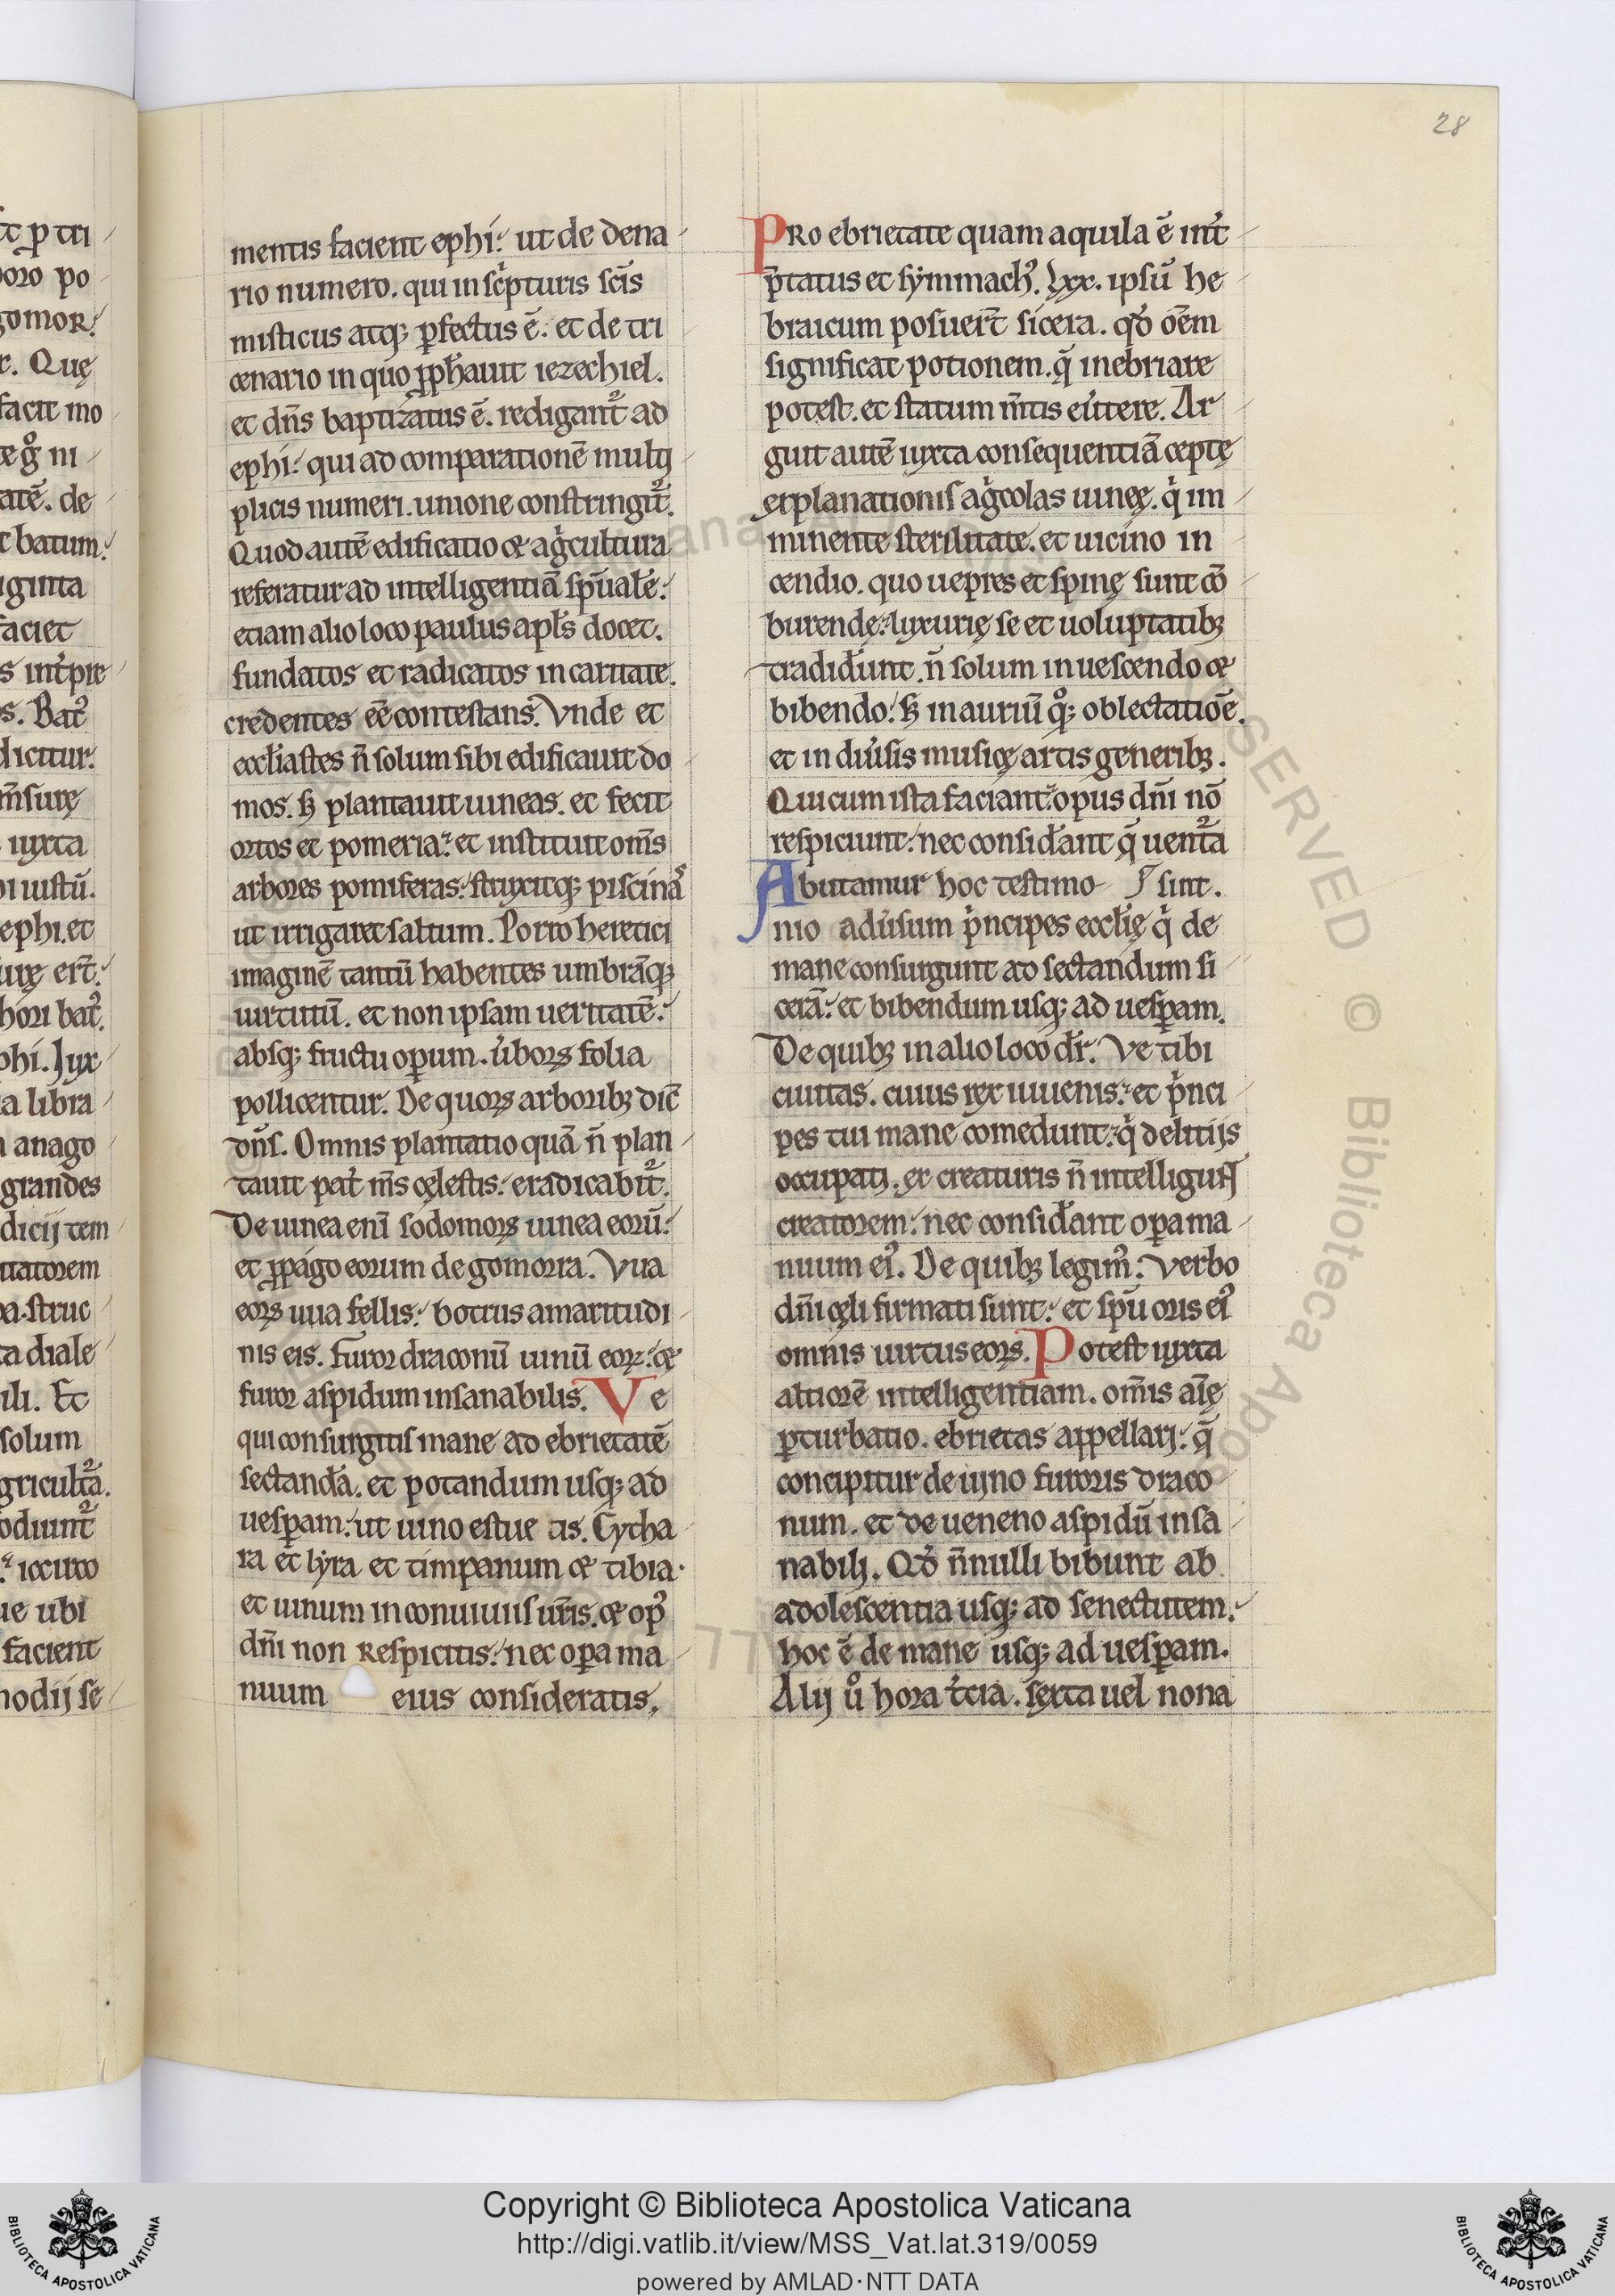 28
mentis facient ephi: ut de dena
rio numero. qui in sc�ͥpturis sc̄is
misticus atq; ꝑfectus ē. et de tri
cenario in quo ꝓph̄auit iezechiel.
et dn̄s baptizatus ē. redigant᷑ ad
ephi: qui ad comparationē multi
plicis numeri. unione constringit᷑.
Quod autē edificatio & agͥcultura
referatur ad intelligentiā sp̄ualē:
etiam alio loco paulus apl̄s docet.
fundatos et radicatos in caritate.
credentes eē contestans. Vnde et
eccl̄iastes n̄ solum sibi edificauit do
mos. ꝫ plantauit uineas. et fecit
ortos et pomeria: et instituit om̄s
arbores pomiferas: struxitq; piscinas
ut irrigaret saltum. Porro heretici
imaginē tantū habentes umbrāq;
uirtutū. et non ipsam ueritatē:
absq; fructu oꝑum. u̓boꝝ folia
pollicentur. De quoꝝ arboribꝫ dic̄
dn̄s. Omnis plantatio quā n̄ plan
tauit pat̓ m̄s cęlestis: eradicabit᷑.
De uinea enī sodomoꝝ uinea eorū:
et ꝓpago eorum de gomorra. Vua
eoꝝ uua fellis: botrus amaritudi
nis eis. Furor draconū uinū eoꝝ: &
furor aspidum insanabilis. Ve
qui consurgitis mane ad ebrietatē
sectandā. et potandum usq; ad
uesꝑam: ut uino estue tis. Cytha
ra et lyra et timpanum & tibia.
et uinum in conuiuiis ur̄is. & opꝰ
dn̄i non respicitis: nec oꝑa ma
nuum eius consideratis.
Pro ebrietate quam aquila ē int̓
p̄tatus et symmachꝰ. lxx. ipsū he
braicum posuer̄t sicera. qd̓ om̄em
significat potionem. q̄ inebriare
potest. et statum m̄tis eu̓tere. Ar
guit autē iuxta consequentiā ceptę
explanationis agͥcolas uineę. qͥ im
minente sterilitate. et uicino in
cendio. quo uepres et spinę sunt cō
burendę: luxurię se et uoluptatibꝫ
tradider̄unt. n̄ solum in uescendo &
bibendo: ꝫ in auriū qͦꝫ oblectatiōe.
et in diu̓sis musicę artis generibꝫ.
Qui cum ista faciant: opus dn̄i nō
respiciunt: nec consid̓ant q̄ uent᷑a
sint.
Abutamur hoc testimo
nio adu̓sum pͥncipes eccl̄ię qͥ de
mane consurgunt ad sectandum si
cerā: et bibendum usq; ad uesꝑam.
De quibꝫ in alio loco dr̄. Ve tibi
ciuitas. cuius rex iuuenis: et pͥnci
pes tui mane comedunt: qͥ delitijs
occupati. ex creaturis n̄ intelligunt
creatorem: nec consid̓ant oꝑa ma
nuum eiꝰ. De quibꝫ legimꝰ: Verbo
dn̄i cęli firmati sunt: et sp̄u oris eiꝰ
omnis uirtus eoꝝ. Potest iuxta
altiorē intelligentiam. om̄is aīę
ꝑturbatio. ebrietas appellari: q̄
concipitur de uino furoris draco
num. et de ueneno aspidū insa
nabili. Qd̓ n̄nulli bibunt ab
adolescentia usq; ad senectutem:
hoc ē de mane usq; ad uesꝑam.
Alij uͦ hora t̓cia. sexta uel nona
Copyright © Biblioteca Apostolica Vaticana
http://digi.vatlib.it/view/MSS_Vat.lat.319/0059
powered by AMLAD·NTT DATA
BIBLIOTECA APOSTOLICA VATICANA
BIBLIOTECA APOSTOLICA VATICANA